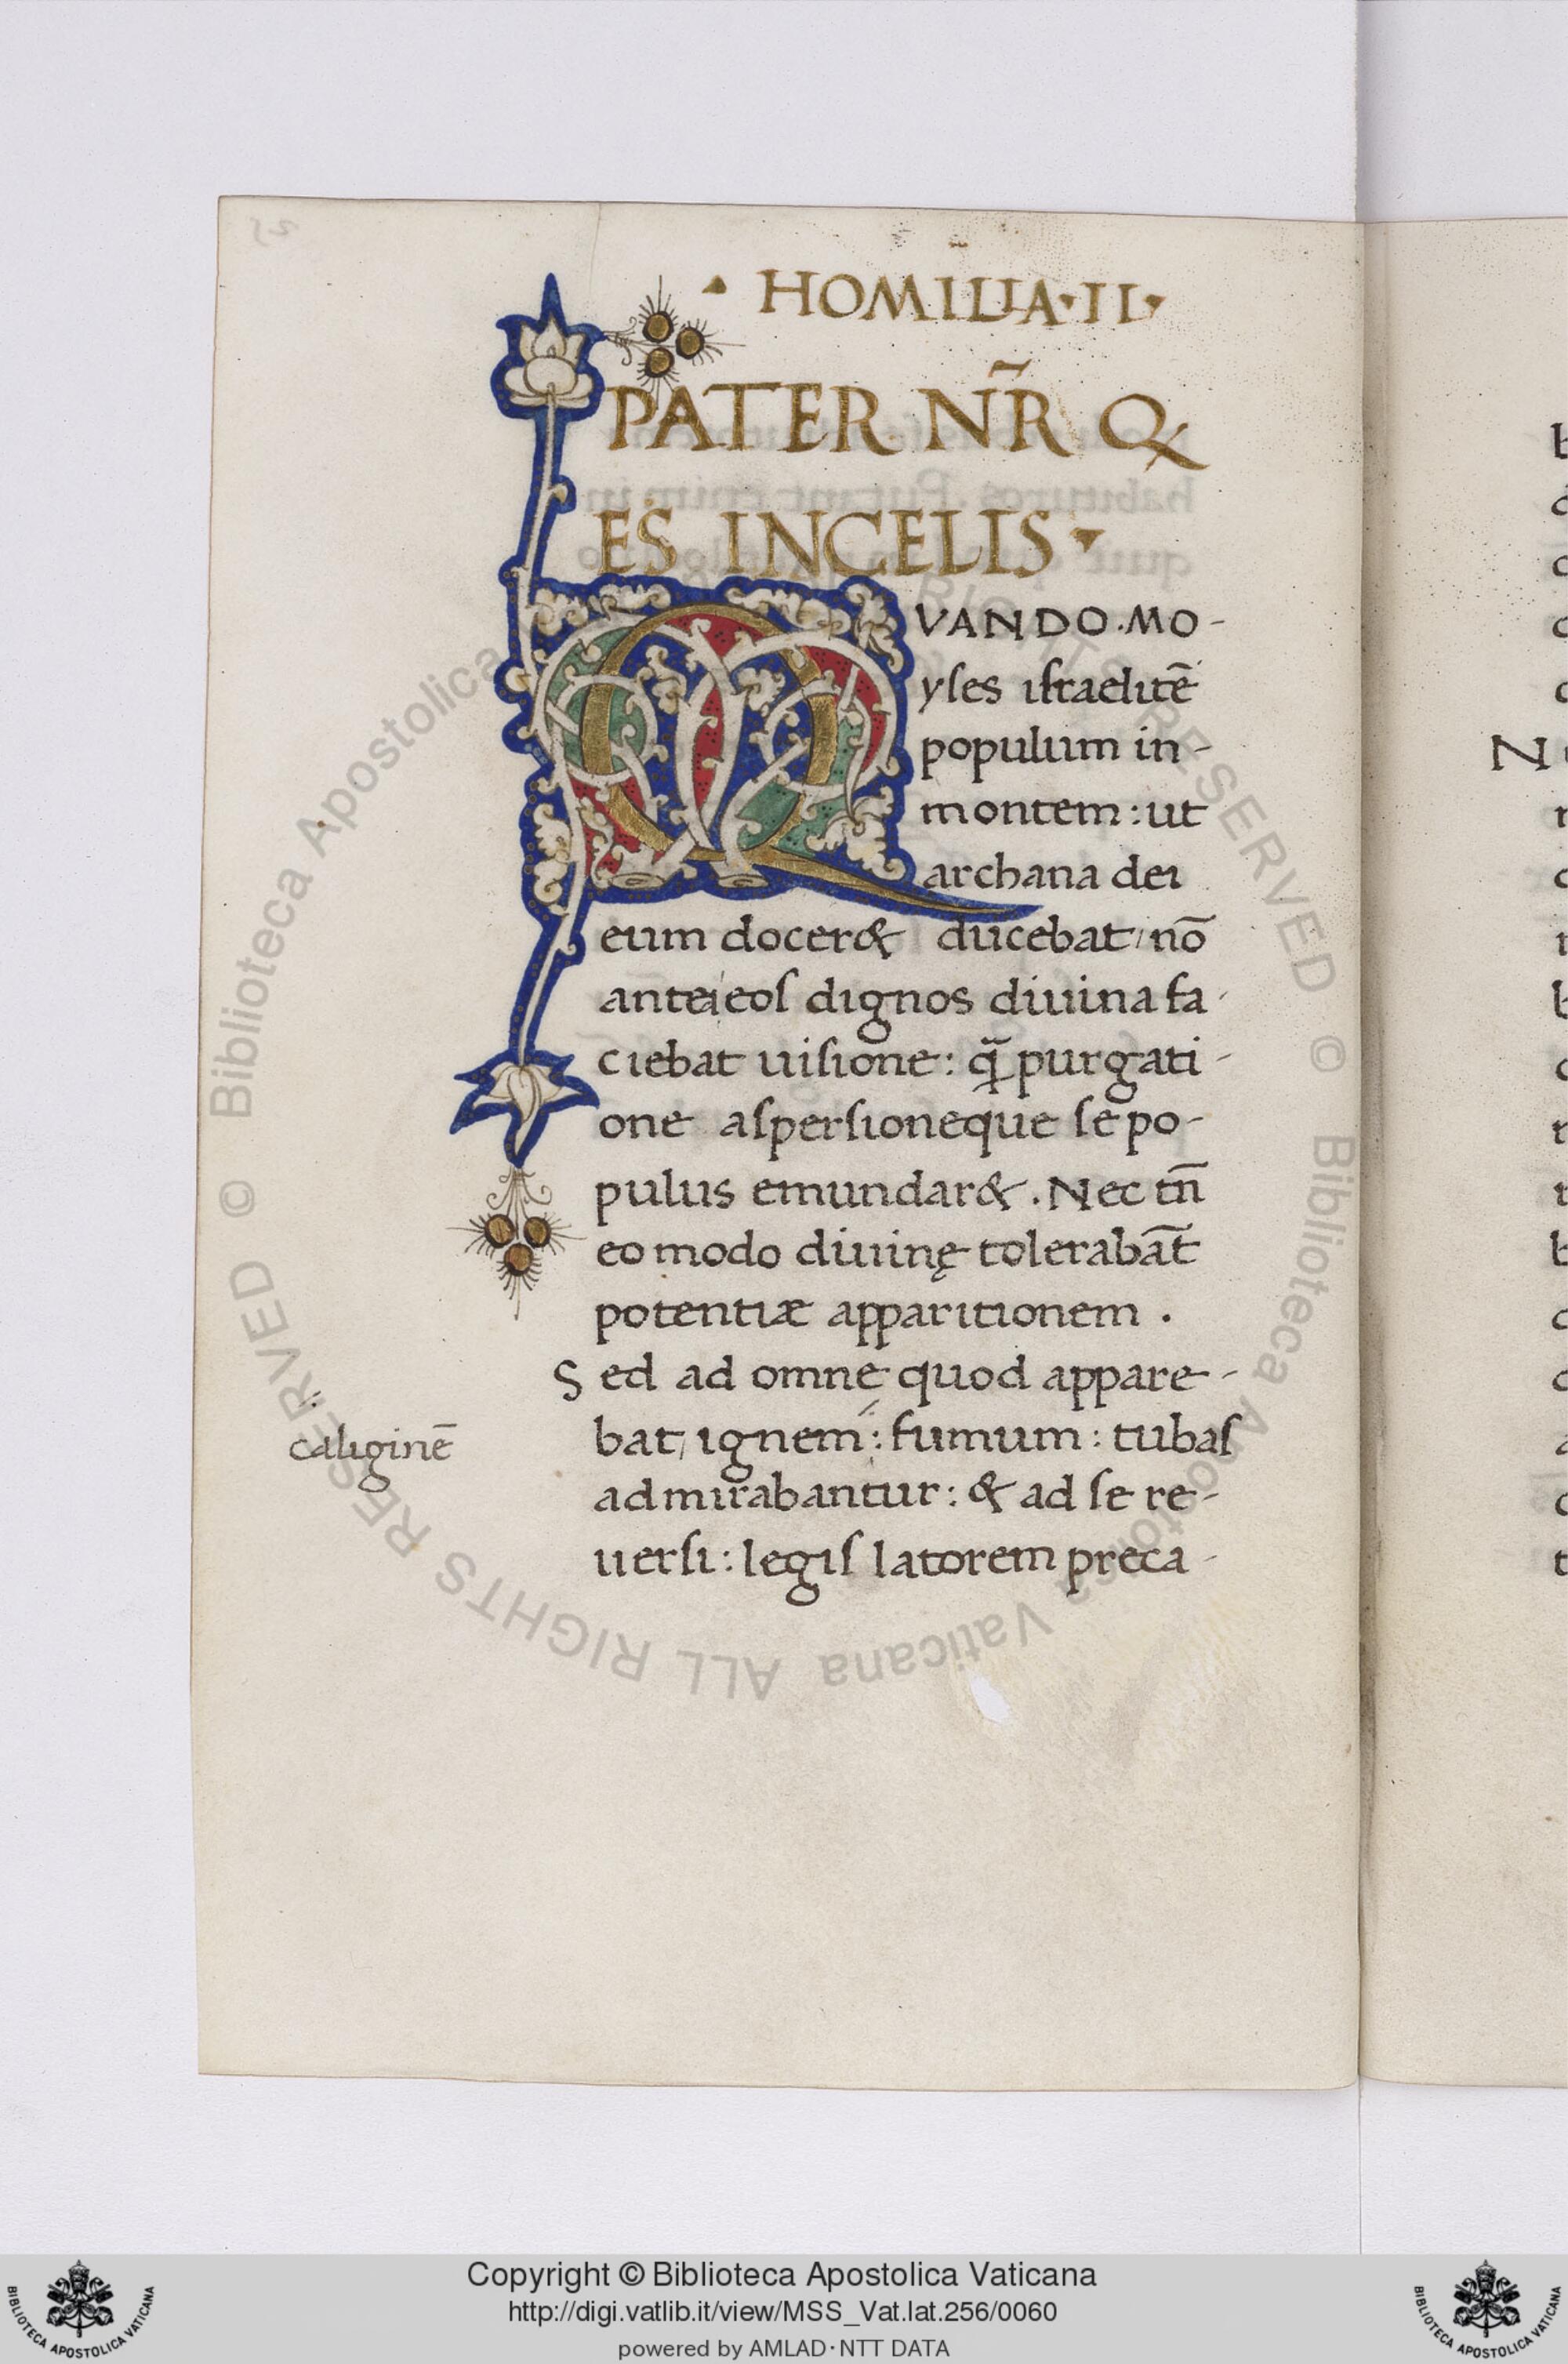 · HOMILIA · II ·
PATER NR̃ Q
ES INCELIS ·
QVANDO · MO-
yſes iſraelitē
populum in-
montem : ut
archana dei
eum docer& ducebat, nō
ante eoſ dignos diuina fa-
ciebat uiſione : q̃ purgati-
one aſperſioneque ſe po-
pulus emundar& . Nec tn̄
eo modo diuinę tolerabāt
potentiæ apparitionem .
Sed ad omne quod appare-
bat, ignem : fumum : tubaſ
caliginē
admirabantur : & ad ſe re-
uerſi : legiſ latorem preca-
N
Copyright © Biblioteca Apostolica Vaticana
http://digi.vatlib.it/view/MSS_Vat.lat.256/0060
powered by AMLAD·NTT DATA
BIBLIOTECA APOSTOLICA VATICANA
BIBLIOTECA APOSTOLICA VATICANA
© Biblioteca Apostolica Vaticana ALL RIGHTS RESERVED
© Biblioteca Apostolica Vaticana ALL RIGHTS RESERVED